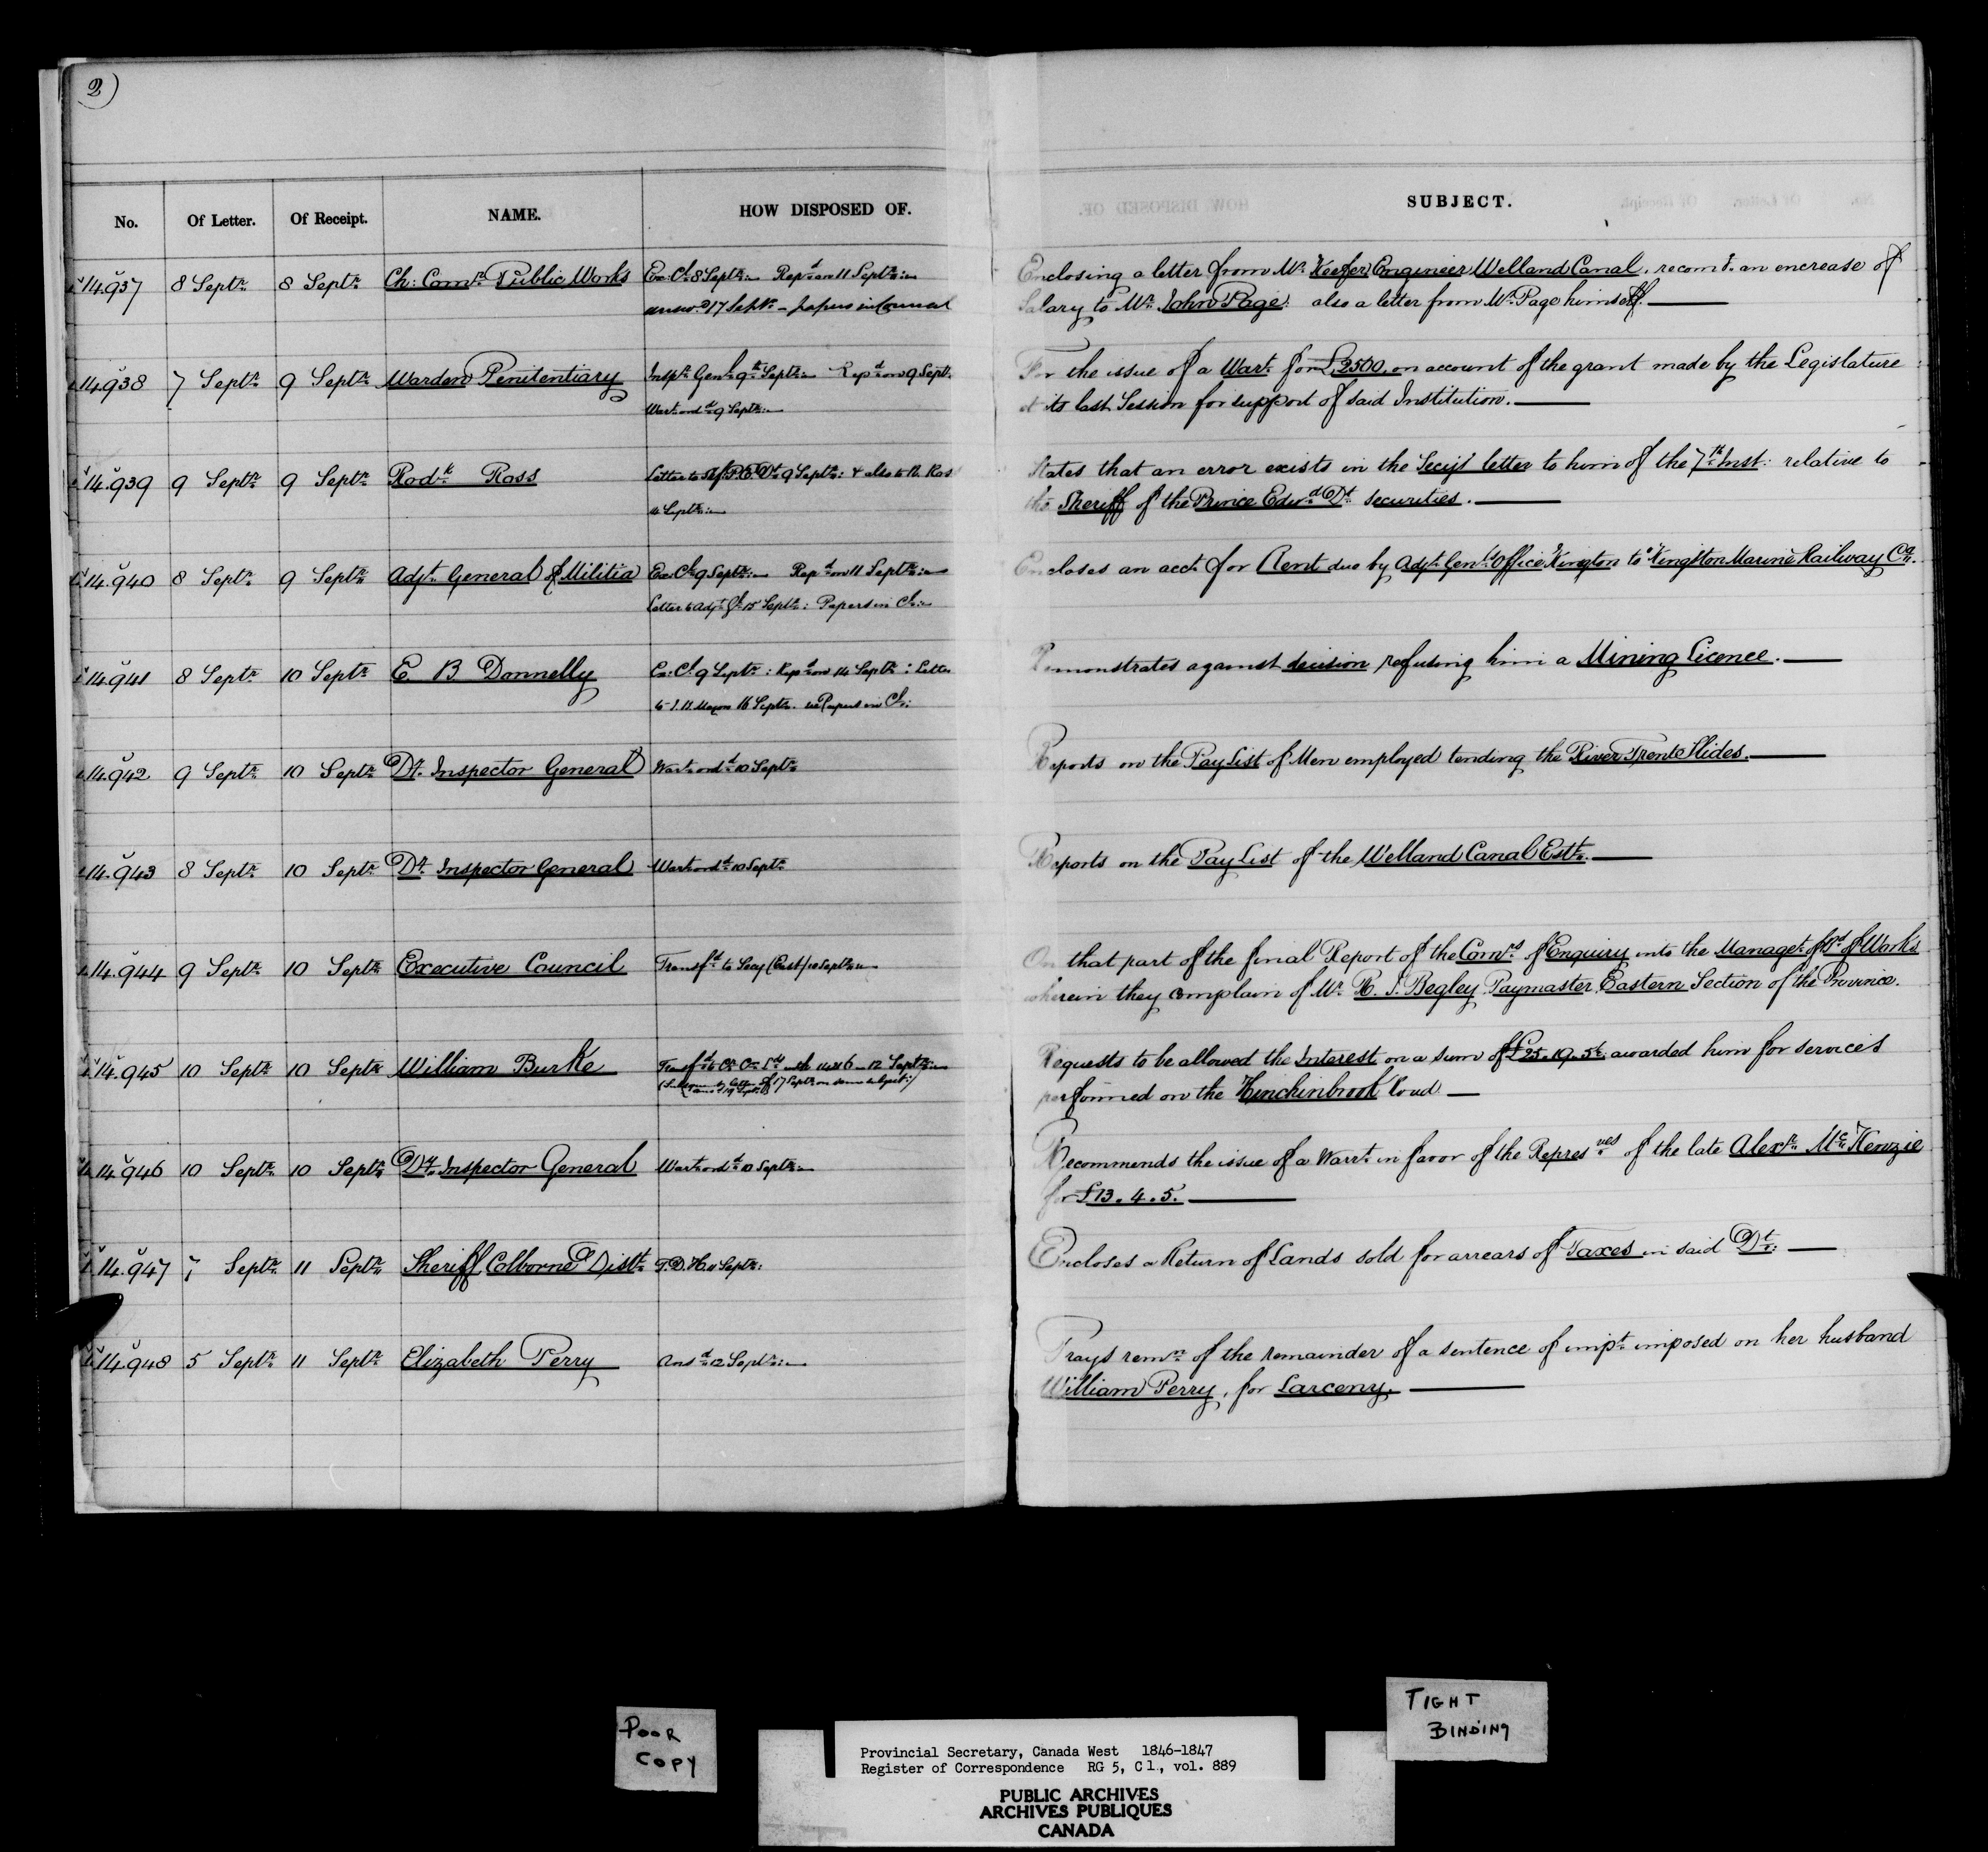 2)
No. Of Letter. Of Receipt. NAME. HOW DISPOSED OF. SUBJECT.
14.937 8 Septr. 8 Septr. Ch: Comr. Public Works Ex: Cl. 8 Septr:— Repd. on 11 Septr:— Enclosing a letter from Mr. Keefer Engineer Welland Canal. recomt. an encrease of
answd. 17 Septr. — papers in Council Salary to Mr. John Page: also a letter from Mr. Page himself.—
14.938 7 Septr. 9 Septr. Warden Penitentiary Inspr. Genl. 9th. Septr:— Repd. on 9 Septr. For the issue of a Wart. for £2500. on account of the grant made by the Legislature
Wart. ord. 9 Septr:— at its last Session for support of said Institution.—
14.939 9 Septr. 9 Septr. Rodk. Ross Letter to Shff. P. E. Dt. 9 Septr: & also to R. Ross States that an error exists in the Secy's letter to him of the 7th. Inst: relative to
11 Septr:— the Sheriff of the Prince Edwd. Dt. securities.—
14.940 8 Septr. 9 Septr. Adjt. General of Militia Ex: Cl. 9 Septr:— Repd. on 11 Septr:— Encloses an acct. for Rent due by Adjt. Genl's Office Kingston to Kingston Marine Railway Co.
Letter to Adjt. Gl. 15 Septr: Papers in Cl:—
14.941 8 Septr. 10 Septr. E B Donnelly Ex: Cl. 9 Septr: Repd. on 14 Septr: Letter Remonstrates against decision refusing him a Mining Licence.—
16 Septr. Papers in Cl:
14.942 9 Septr. 10 Septr. Dy. Inspector General Wart. ordd. 10 Septr. Reports on the Pay List of Men employed tending the River Trent Slides.—
14.943 8 Septr. 10 Septr. Dy. Inspector General Wart. ordd. 10 Septr. Reports on the Pay List of the Welland Canal Estt.—
14.944 9 Septr. 10 Septr. Executive Council Transfd. to Secy (East) 10 Septr:— On that part of the final Report of the Comrs. of Enquiry into the Managet. of Bd. of Works
wherein they complain of Mr. R. S. Begley Paymaster Eastern Section of the Province.
14.945 10 Septr. 10 Septr. William Burke Transfd. to Cr. Lds. with 12 Septr:— Requests to be allowed the Interest on a sum of £25.19.5½ awarded him for services
letter of 17 Septr. on same subject performed on the Hinchinbrook Road—
14.946 10 Septr. 10 Septr. Dy. Inspector General Wart. ordd. 10 Septr:— Recommends the issue of a Warrt. in favor of the Represves. of the late Alexr. McKenzie
for £13.4.5.—
14.947 7 Septr. 11 Septr. Sheriff Colborne Distt. T. D. H. 11 Septr: Encloses a Return of Lands sold for arrears of Taxes in said Dt:—
14.948 5 Septr. 11 Septr. Elizabeth Perry Ansd. 12 Septr:— Prays remn. of the remainder of a sentence of impt. imposed on her husband
William Perry, for Larceny.—
POOR
COPY
TIGHT
BINDING
Provincial Secretary, Canada West 1846-1847
Register of Correspondence RG 5, C1., vol. 889
PUBLIC ARCHIVES
ARCHIVES PUBLIQUES
CANADA